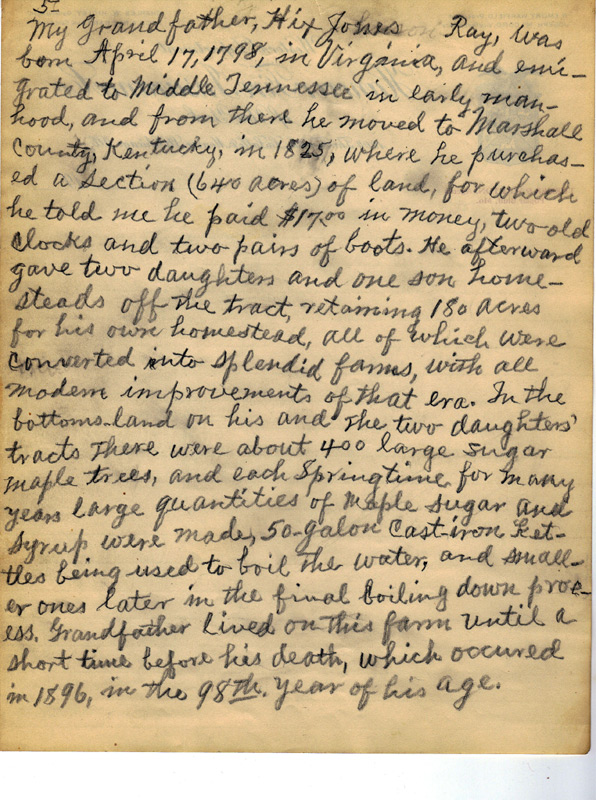 5-
My Grandfather, Hix Jones Ray, was
born April 17, 1798, in Virginia, and emi-
grated to Middle Tennessee in early man-
hood, and from there he moved to Marshall
County, Kentucky, in 1825, where he purchas-
ed a section (640 acres) of land, for which
he told me he paid $17.00 in money, two old
clocks and two pairs of boots. He afterward
gave two daughters and one son home-
steads off the tract, retaining 180 acres
for his own homestead, all of which were
converted into splendid farms, with all
modern improvements of that era. In the
bottoms-land on his and the two daughters'
tracts there were about 400 large sugar
maple trees, and each Springtime for many
years large quantities of Maple Sugar and
Syrup were made, 50-galon Cast-iron Ket-
tles being used to boil the water, and small-
er ones later in the final boiling down proc-
ess. Grandfather lived on this farm until a
short time before his death, which occured
in 1896, in the 98th. year of his age.